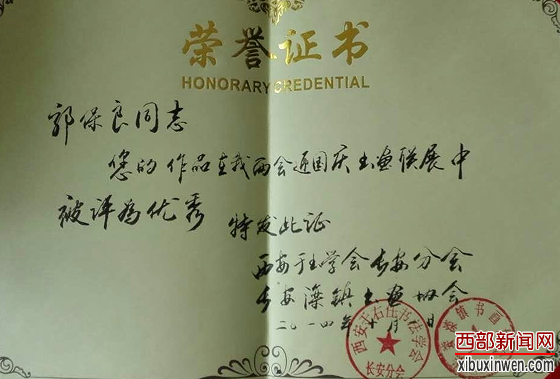 荣誉证书
HONORARY CREDENTIAL
郭保良同志
您的作品在我两会迎国庆书画联展中
被评为优秀 特发此证
西安于右任书法学会长安分会
长安滦镇书画协会
二〇一四年十月 日
西安于右任书法学会
长安分会
西部新闻网
xibuxinwen.com